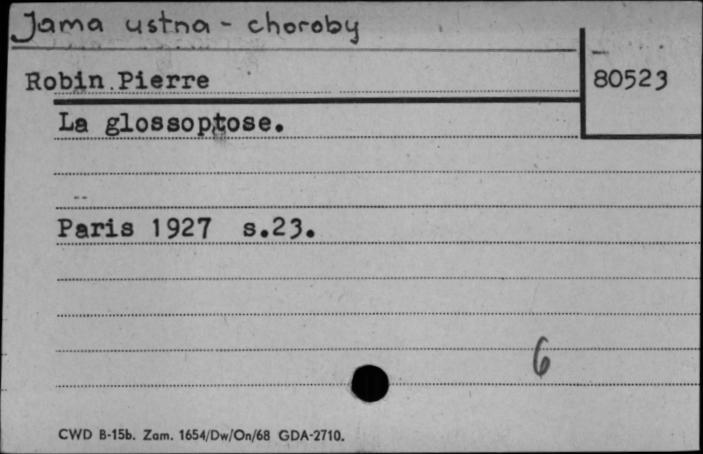 Jama ustna - choroby
Robin Pierre
80523
La glossoptose.
Paris 1927 s.23.
6
CWD B-15b. Zam. 1654/Dw/On/68 GDA-2710.